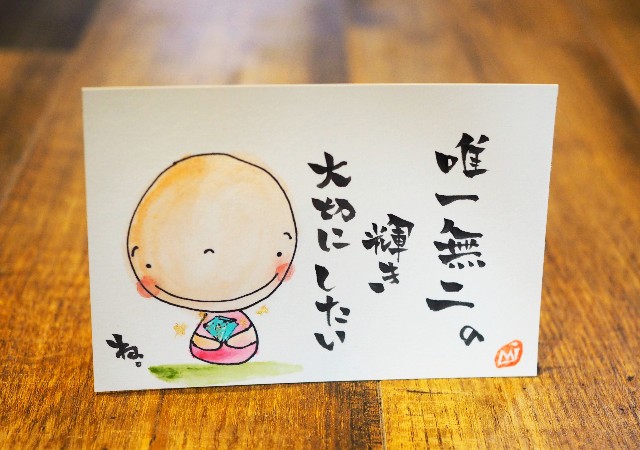 唯一無二の
輝き
大切にしたい
ね。